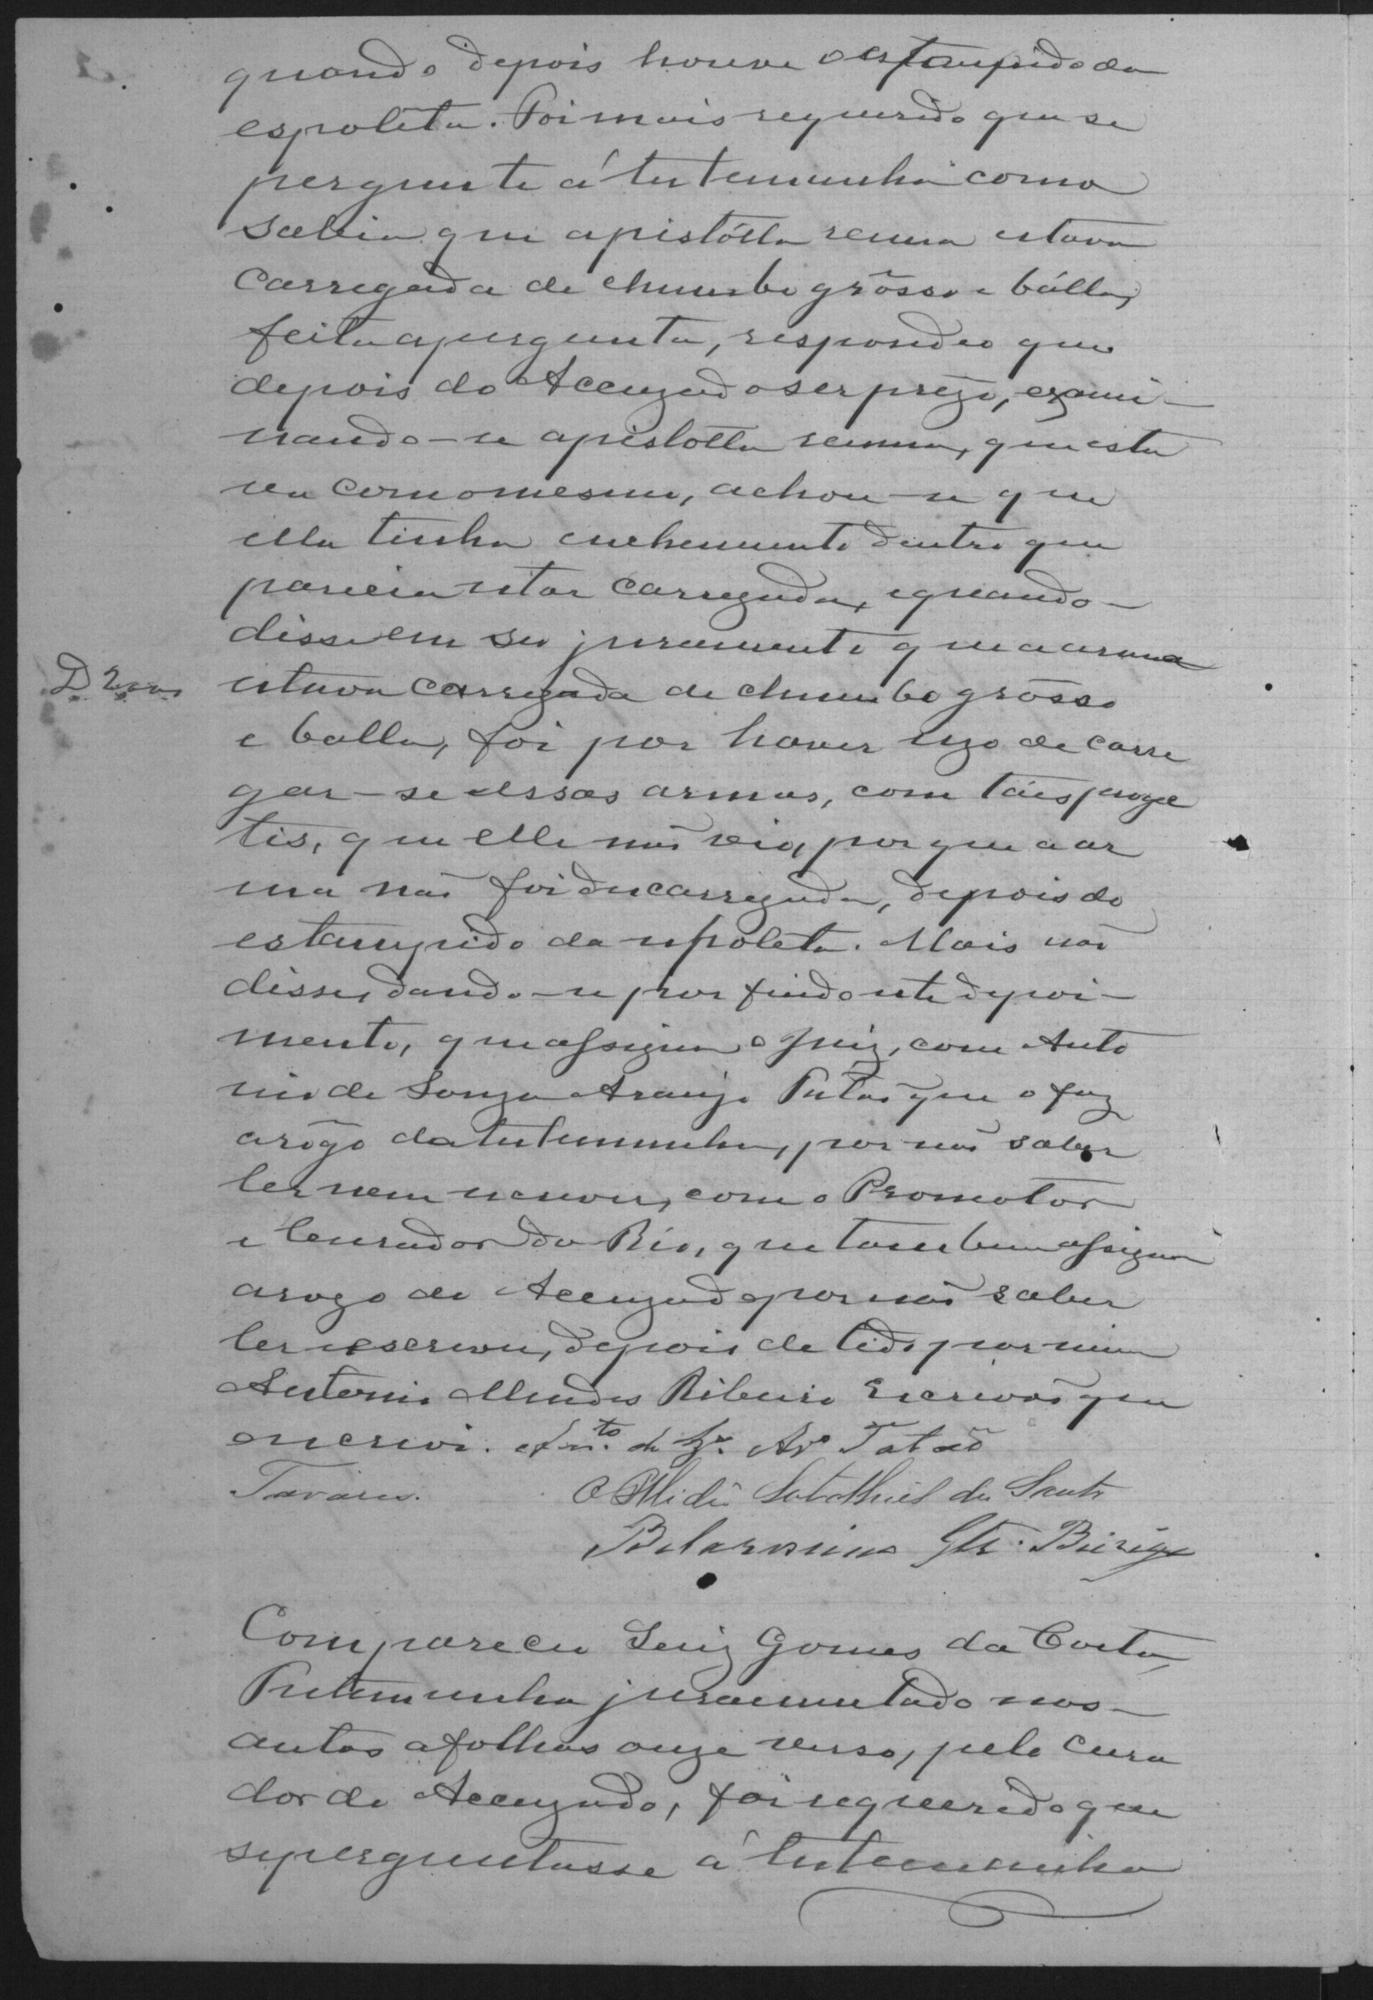 quando depois houve o estampido da
espolêta. Foi mais requerido que se
pergunte á testemunha como
sabia que a pistólla reuna estava
carregada de chumbo grôsso e bálla,
feita a pergunta, respondeo que
depois do Accuzado ser prêzo, exami-
nando-se a pistolla reuna, que esta
va com o mesmo, achou-se que
ella tinha enchemento dentro que
parecia estar carregada, e quando-
disse em seo juramento que a arma
D 2000 estava carregada de chumbo grôsso
e balla, foi por haver uzo de carre
gar-se essas armas, com táes proge
tis, que elle não vio, porque a ar
ma não foi descarregada, depois do
estampido da espoleta. Mais não
disse, dando-se por findo este depoi-
mento, que assigna o Juiz, com Anto
nio de Souza Araujo Tatão que o faz
arôgo da testemunha, por não saber
ler nem escrever, com o Promotor
e Curador do Réo, que tambem assigna
arogo do Accuzado por não saber
ler e escrever, depois de lido por mim
Antonio Mendes Ribeiro Escrivão que
o escrevi. Anto. de Sza. Aro Tatão
Tavares.
Belarmino
Compareceu Luiz Gomes da Costa,
Testemunha juramentado nos-
autos a folhas onze verso, pelo Cura
dor do Accuzado, foi requerido que
se perguntasse á testemunha